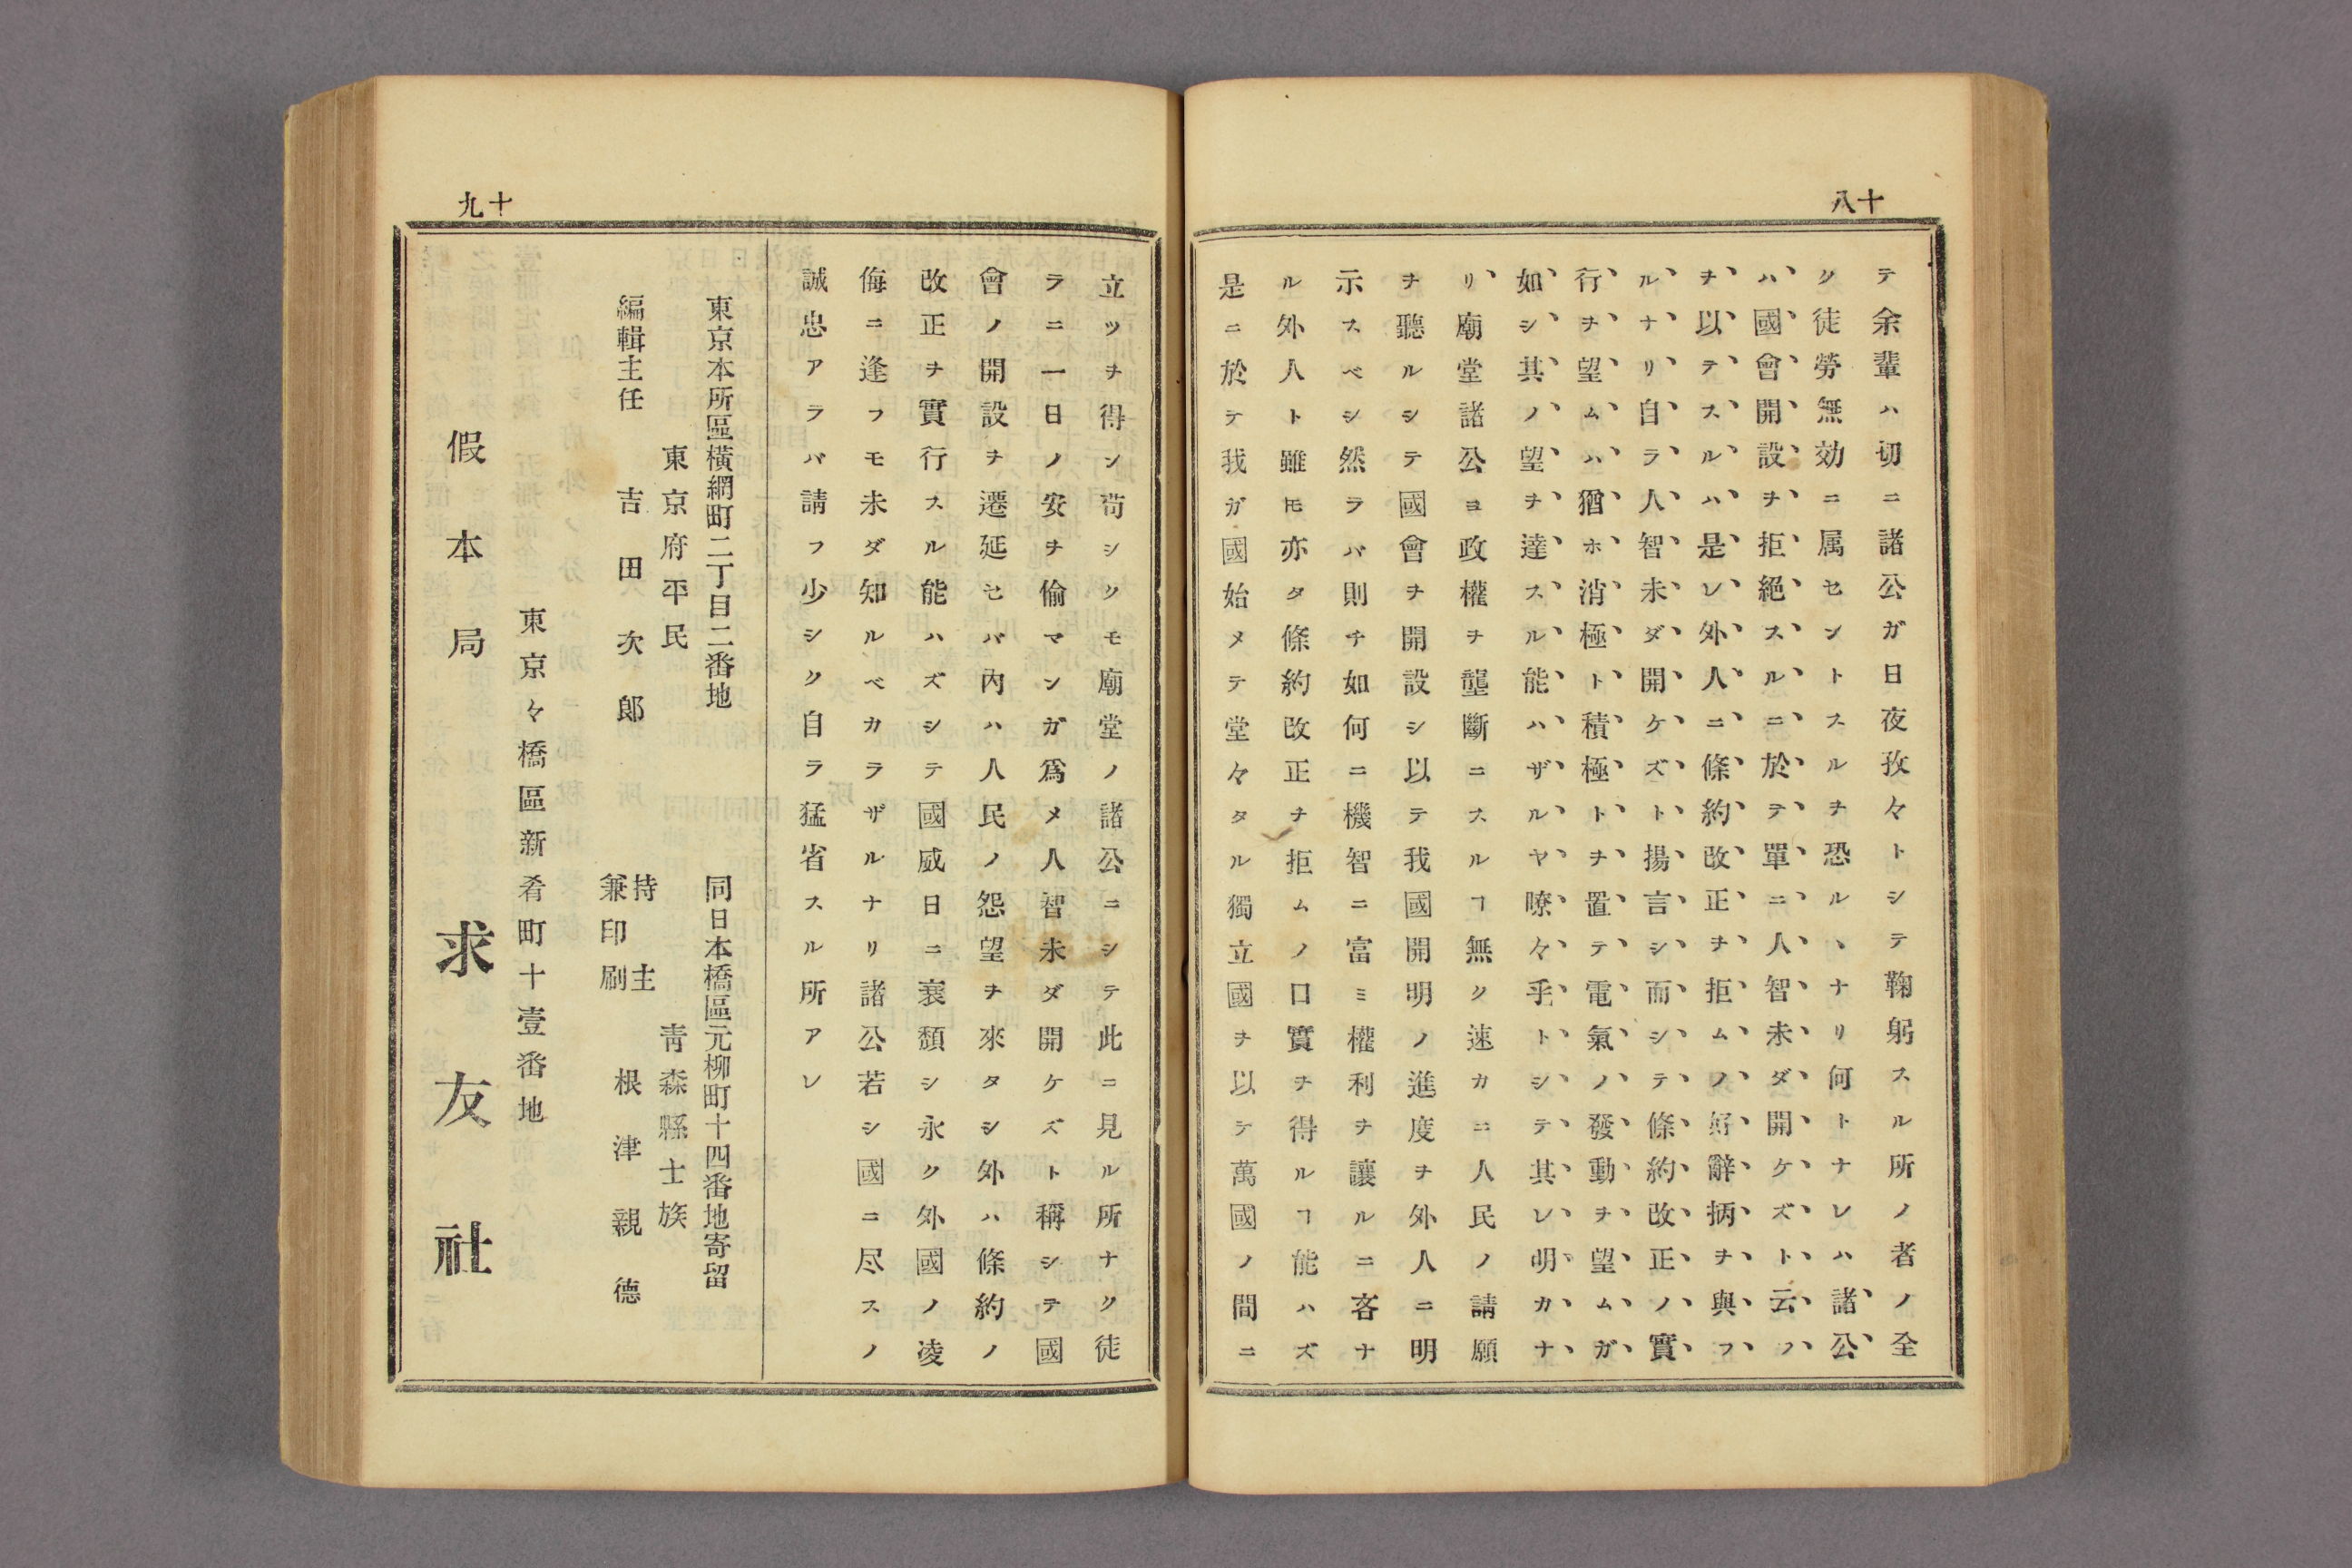 十八
テ余輩ハ切ニ諸公ガ日夜孜々トシテ鞠躬スル所ノ者ノ全
ク徒勞無効ニ属セントスルヲ恐ルヽナリ何トナレハ諸公
ハ國會開設ヲ拒絶スルニ於テ單ニ人智未ダ開ケズト云フ
ヲ以テスルハ是レ外人ニ條約改正ヲ拒ムノ好辭抦ヲ與フ
ルナリ自ラ人智未ダ開ケズト揚言シ而シテ條約改正ノ實
行ヲ望ムハ猶ホ消極ト積極トヲ置テ電氣ノ發動ヲ望ムガ
如シ其ノ望ヲ達スル能ハザルヤ瞭々乎トシテ其レ明カナ
リ廟堂諸公ヨ政權ヲ壟斷ニスルヿ無ク速カニ人民ノ請願
ヲ聽ルシテ國會ヲ開設シ以テ我國開明ノ進度ヲ外人ニ明
示スベシ然ラバ則チ如何ニ機智ニ富ミ權利ヲ讓ルニ吝ナ
ル外人ト雖𪜈亦タ條約改正ヲ拒ムノ口實ヲ得ルヿ能ハズ
是ニ於テ我ガ國始メテ堂々タル獨立國ヲ以テ萬國ノ間ニ
十九
立ツヲ得ン苟シクモ廟堂ノ諸公ニシテ此ニ見ル所ナク徒
ラニ一日ノ安ヲ偷マンガ爲メ人智未ダ開ケズト稱シテ國
會ノ開設ヲ遷延セバ內ハ人民ノ怨望ヲ來タシ外ハ條約ノ
改正ヲ實行スル能ハズシテ國威日ニ衰頽シ永ク外國ノ凌
侮ニ逢フモ未ダ知ルベカラザルナリ諸公若シ國ニ尽スノ
誠忠アラバ請フ少シク自ラ猛省スル所アレ
東京本所區橫網町二丁目二番地
東京府平民
編輯主任 吉田次郎
同日本橋區元柳町十四番地寄留
青森縣士族
持主
兼印刷 根津親德
東京々橋區新肴町十壹番地
假本局 求友社